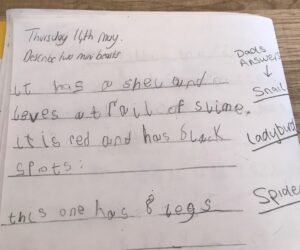 Thursday 14th May.
Describe two mini beasts
Dads
Answers
↓
it has a shell and
leves a trall of slime.
Snail
it is red and has black
spots.
Ladybird
this one has 8 legs
Spider